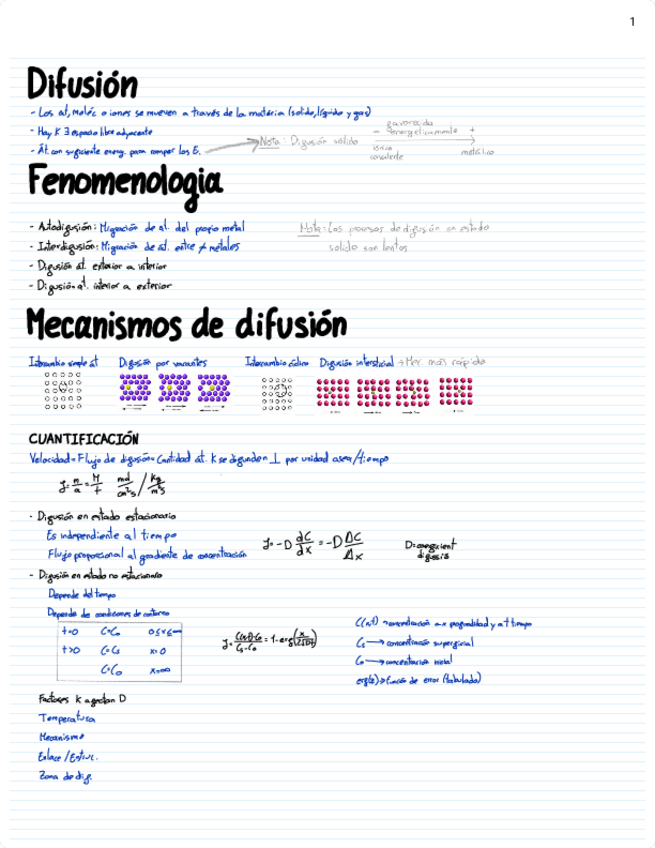 1
Difusión
- Los at, moléc o iones se mueven a través de la materia (solido, líquido y gas)
- Hay K ∃ espacio libre adyacente
- Át. con suficiente energ. para romper los E.
Nota: Difusión sólido
favorecida
- energéticamente +
iónico
covalente
metálico
Fenomenologia
- Autodifusión: Migración de at. del propio metal
- Interdifusión: Migración de at. entre ≠ metales
- Difusión at. exterior a interior
- Difusión at. interior a exterior
Nota: Los procesos de difusión en estado
solido son lentos
Mecanismos de difusión
Intercambio simple at
Difusión por vacantes
Intercambio cíclico
Difusión intersticial → Mec. más rápido
CUANTIFICACIÓN
Velocidad = Flujo de difusión = Cantidad át. K se difunden ⊥ por unidad area/tiempo
· Difusión en estado estacionario
Es independiente al tiempo
Flujo proporcional al gradiente de concentración
J = -D dC/dx = -D ΔC/Δx
D = coeficient
difusió
- Difusión en estado no estacionario
Depende del tiempo
Depende de condiciones de contorno
t=0 C=C₀ 0≤x≤∞
t>0 C=Cs x=0
C=C₀ x=∞
C(x,t) → concentración a x profundidad y a t tiempo
Cs → concentración superficial
C₀ → concentración inicial
erf(z) → función de error (tabulado)
Factores K afectan D
Temperatura
Mecanismo
Enlace / Estruc.
Zona de dif.